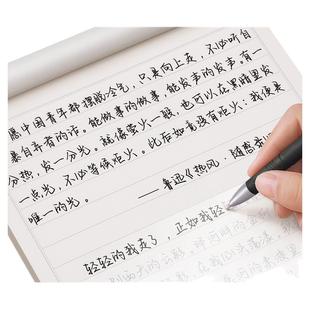 愿中国青年都摆脱冷气，只是向上走，不必听自
暴自弃者的话。能做事的做事，能发声的发声。有一
分热，发一分光。就像萤火一般，也可以在黑暗里发
一点光，不必等候炬火。此后如竟没有炬火：我便是
唯一的光。
——鲁迅《热风·随感录
轻轻的我走了，正如我轻